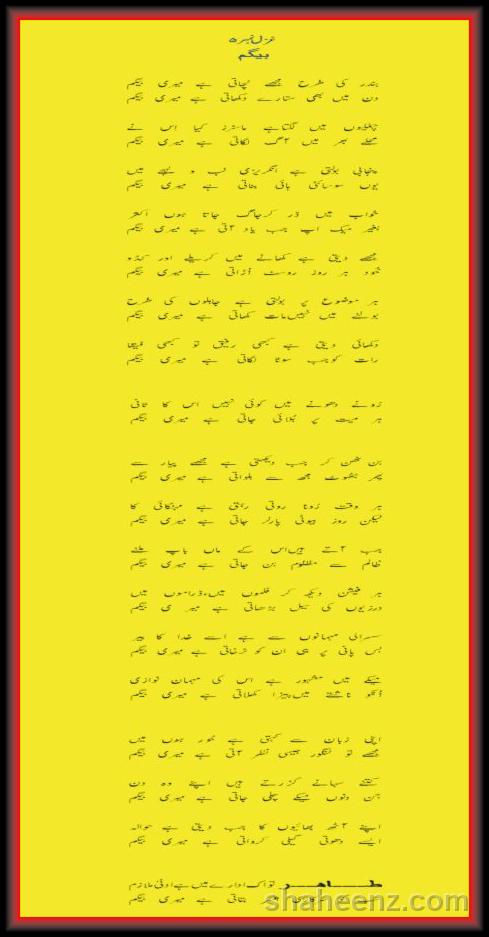 غزل نمبر ۵
بیگم
بندر کی طرح مجھے نچاتی ہے میری بیگم
دن میں بھی ستارے دکھاتی ہے میری بیگم
چغلیوں میں لگتاہے ماسٹرز کیا اس نے
محلے بھر میں آگ لگاتی ہے میری بیگم
پنجابی بولتی ہے انگریزی لب و لہجے میں
یوں سوسائٹی ہائی بناتی ہے میری بیگم
خواب میں ڈر کرجاگ جاتا ہوں اکثر
بغیر میک اپ جب یاد آتی ہے میری بیگم
مجھے دیتی ہے کھانے میں کریلے اور کدو
خود ہر روز روسٹ اڑاتی ہے میری بیگم
ہر موضوع پر بولتی ہے جاہلوں کی طرح
بولنے میں نہیں مات کھاتی ہے میری بیگم
دکھائی دیتی ہے کبھی ریشماں تو کبھی
رات کوجب سوٹا لگاتی ہے میری بیگم
رونے دھونے میں کوئی نہیں اس کا ثانی
ہر میت پر بلائی جاتی ہے میری بیگم
بن ٹھن کر جب دیکھتی ہے مجھے پیار سے
پھر جھوٹ مجھ سے بلواتی ہے میری بیگم
ہر وقت رونا روتی رہتی ہے مہنگائی کا
لیکن روز بیوٹی پارلر جاتی ہے میری بیگم
جب آتے ہیں اس کے ماں باپ ملنے
ظالم سے مظلوم بن جاتی ہے میری بیگم
ہر فیشن دیکھ کر فلموں میں،ڈراموں میں
درزیوں کی سیل بڑھاتی ہے میر ی بیگم
سسرالی مہمانوں سے ہے اسے خدا کا بیر
بس پانی پر ہی ان کو ٹرخاتی ہے میری بیگم
میکے میں مشہور ہے اس کی مہمان نوازی
ڈنکو ناشتے میں پیزا کھلاتی ہے میری بیگم
اپنی زبان سے کہتی ہے حور ہوں میں
مجھے تو لنگور جیسی نظر آتی ہے میری بیگم
کتنے سہانے گزرتے ہیں اپنے وہ دن
جن دنوں میکے چلی جاتی ہے میری بیگم
اپنے آٹھ بھائیوں کا جب دیتی ہے حوالہ
ایسے دھوتی گیلی کرواتی ہے میری بیگم
طاہر تو اک ادارے میں ہے ادنیٰ ملازم
بتاتی ہے میری بیگم
shaheenz.com